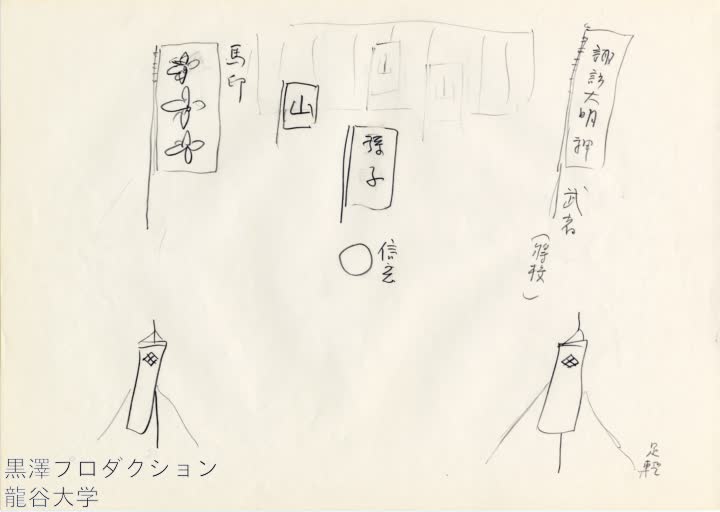 馬印
山
山
山
孫子
諏訪大明神
武者
(将校)
信玄
足軽
黒澤プロダクション
龍谷大学